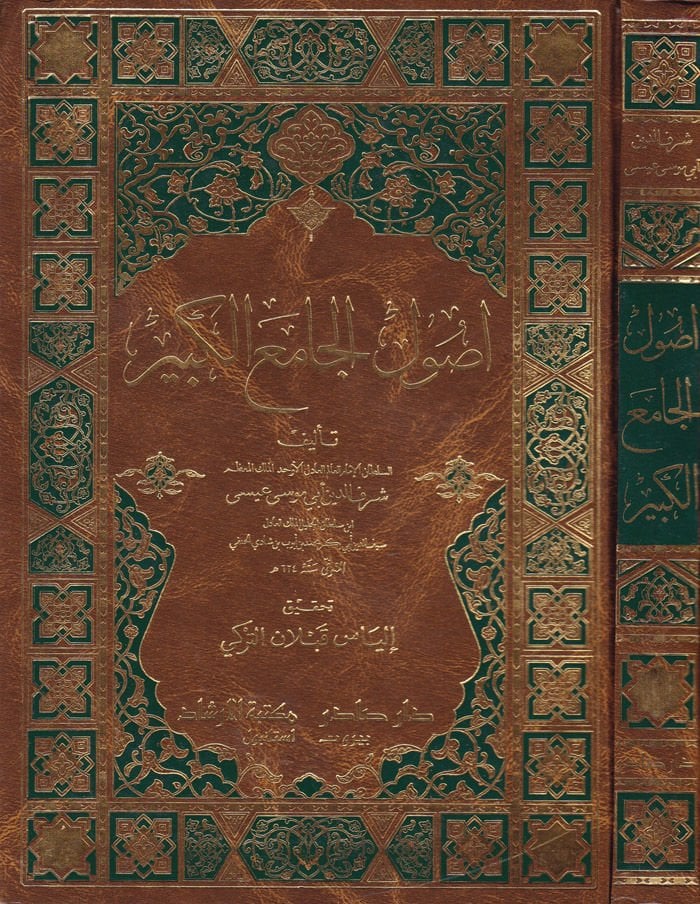 اصول الجامع الكبير
تأليف
السلطان الإمام العالم العادل الأوحد الملك المعظم
شرف الدين أبي موسى عيسى
ابن سلطان الجليل الملك العادل
سيف الدين أبي بكر محمد بن أيوب بن شادي الحنفي
المتوفى سنة ٦٢٤ هـ
تحقيق
إلياس قبلان التركي
دار صادر
بيروت
مكتبة الإرشاد
استانبول
شرف الدين
أبي موسى عيسى
اصول
الجامع
الكبير